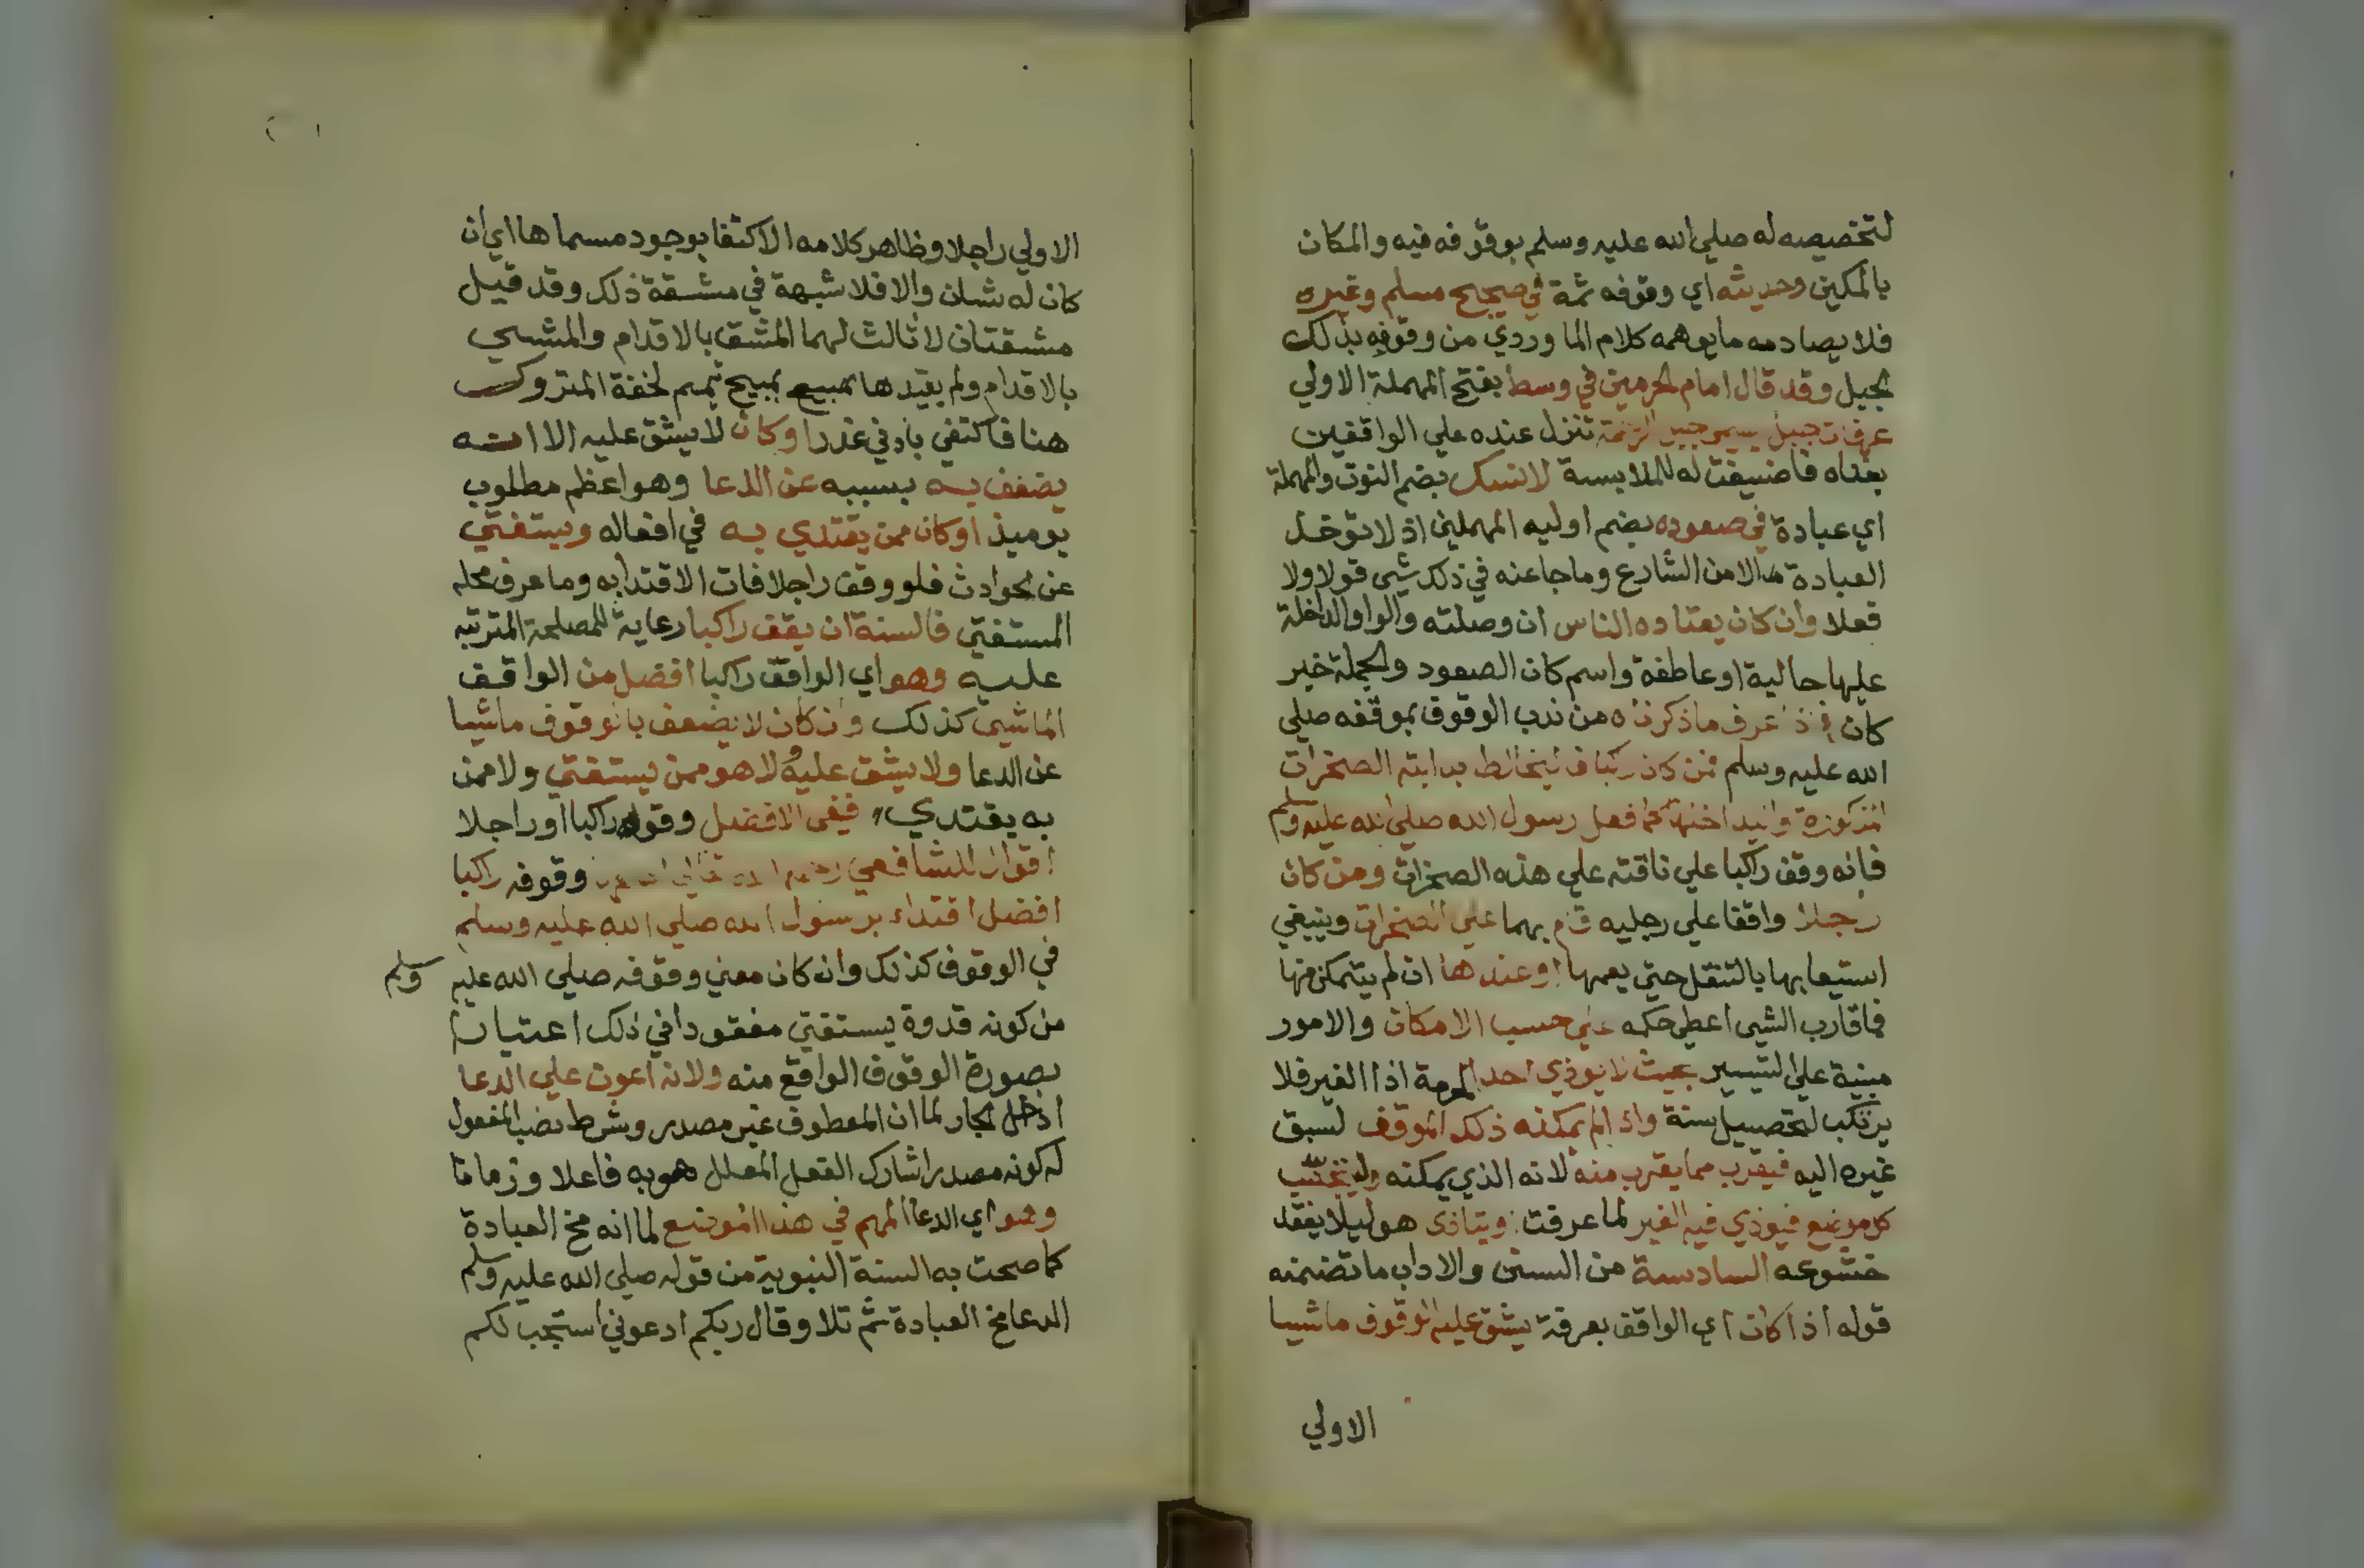 لتخصيصه له صلي الله عليه وسلم بوقوفه فيه والمكان
بالمكين وحديثه اي وقوفه ثمة في صحيح مسلم وغيره
فلا يصادمه ما يوهمه كلام الماوردي من وقوفه بذلك
الجبل وقد قال امام الحرمين في وسط بفتح المهملة الاولي
عرفات جبل يسمي جبل الرحمة تنزل عنده علي الواقفين
بغداه فاضيفت له للملابسة لا نسك بضم النون والمهملة
اي عبادة في صعوده بضم اوليه المهملين اذ لا توخذ
العبادة الا من الشارع وما جا عنه في ذلك شي قولا ولا
فعلا وان كان يعتاده الناس ان وصلته والواو الداخلة
عليها حالية او عاطفة واسم كان الصعود والجملة خبر
كان فاذا عرف ما ذكرناه من ندب الوقوف بموقفه صلي
الله عليه وسلم فمن كان راكبا فليخالط بدابته الصخرات
المذكورة وليداخلها كما فعل رسول الله صلي الله عليه وسلم
فانه وقف راكبا علي ناقته علي هذه الصخرات ومن كان
رجلا واقفا علي رجليه قام بهما علي الصخرات وينبغي
استيعابها بالتنقل حتي يعمها او عندها ان لم يتمكن منها
فما قارب الشي اعطي حكمه علي حسب الامكان والامور
مبنية علي التيسير بحيث لا يوذي احدا لحرمة اذا الغير فلا
يرتكب لتحصيل سنة واذا لم يمكنه ذلك الموقف لسبق
غيره اليه فيقرب مما يقرب منه لانه الذي يمكنه وليتجنب
كل موضع فيوذي فيه الغير لما عرفت ويتاذي هو ليلا يفقد
خشوعه السادسة من السنن والاداب ما تضمنه
قوله اذا كان اي الواقف بعرفة يشق عليه الوقوف ماشيا
الاولي
الاولي راجلا وظاهر كلامه الاكتفا بوجود مسماها اي ان
كان له شان والا فلا شبهة في مشقة ذلك وقد قيل
مشقتان لا ثالث لهما المشق بالاقدام والمشي
بالاقدام ولم يقيدها بمبيح تيمم لخفة المتروك
هنا فاكتفي بادني عذر او كان لا يشق عليه الا انه
يضعف به بسببه عن الدعا وهو اعظم مطلوب
يوميذ او كان ممن يقتدي به في افعاله ويستفتي
عن الحوادث فلو وقف راجلا فات الاقتدا به وما عرف محله
المستفتي فالسنة ان يقف راكبا رعاية للمصلحة المترتبه
عليه وهو اي الواقف راكبا افضل من الواقف
الماشي كذلك وان كان لا يضعف بالوقوف ماشيا
عن الدعا ولا يشق عليه ولا هو ممن يستفتي ولا ممن
به يقتدي ففي الافضل وقوفه راكبا او راجلا
اقوال للشافعي رحمه الله تعالي وقوفه راكبا
افضل اقتداء برسول الله صلي الله عليه وسلم
في الوقوف كذلك وان كان معني وقوفه صلي الله عليه وسلم
من كونه قدوة يستفتي مفقودا في ذلك اعتبارا
بصورة الوقوف الواقع منه ولانه اعون علي الدعا
ادخل الجار لما ان المعطوف غير مصدر وشرط نصب المفعول
له كونه مصدرا شارك الفعل المعلل هو به فاعلا وزمانا
وهو اي الدعا المهم في هذا الموضع لما انه مخ العبادة
كما صحت به السنة النبوية من قوله صلي الله عليه وسلم
الدعا مخ العبادة ثم تلا وقال ربكم ادعوني استجب لكم